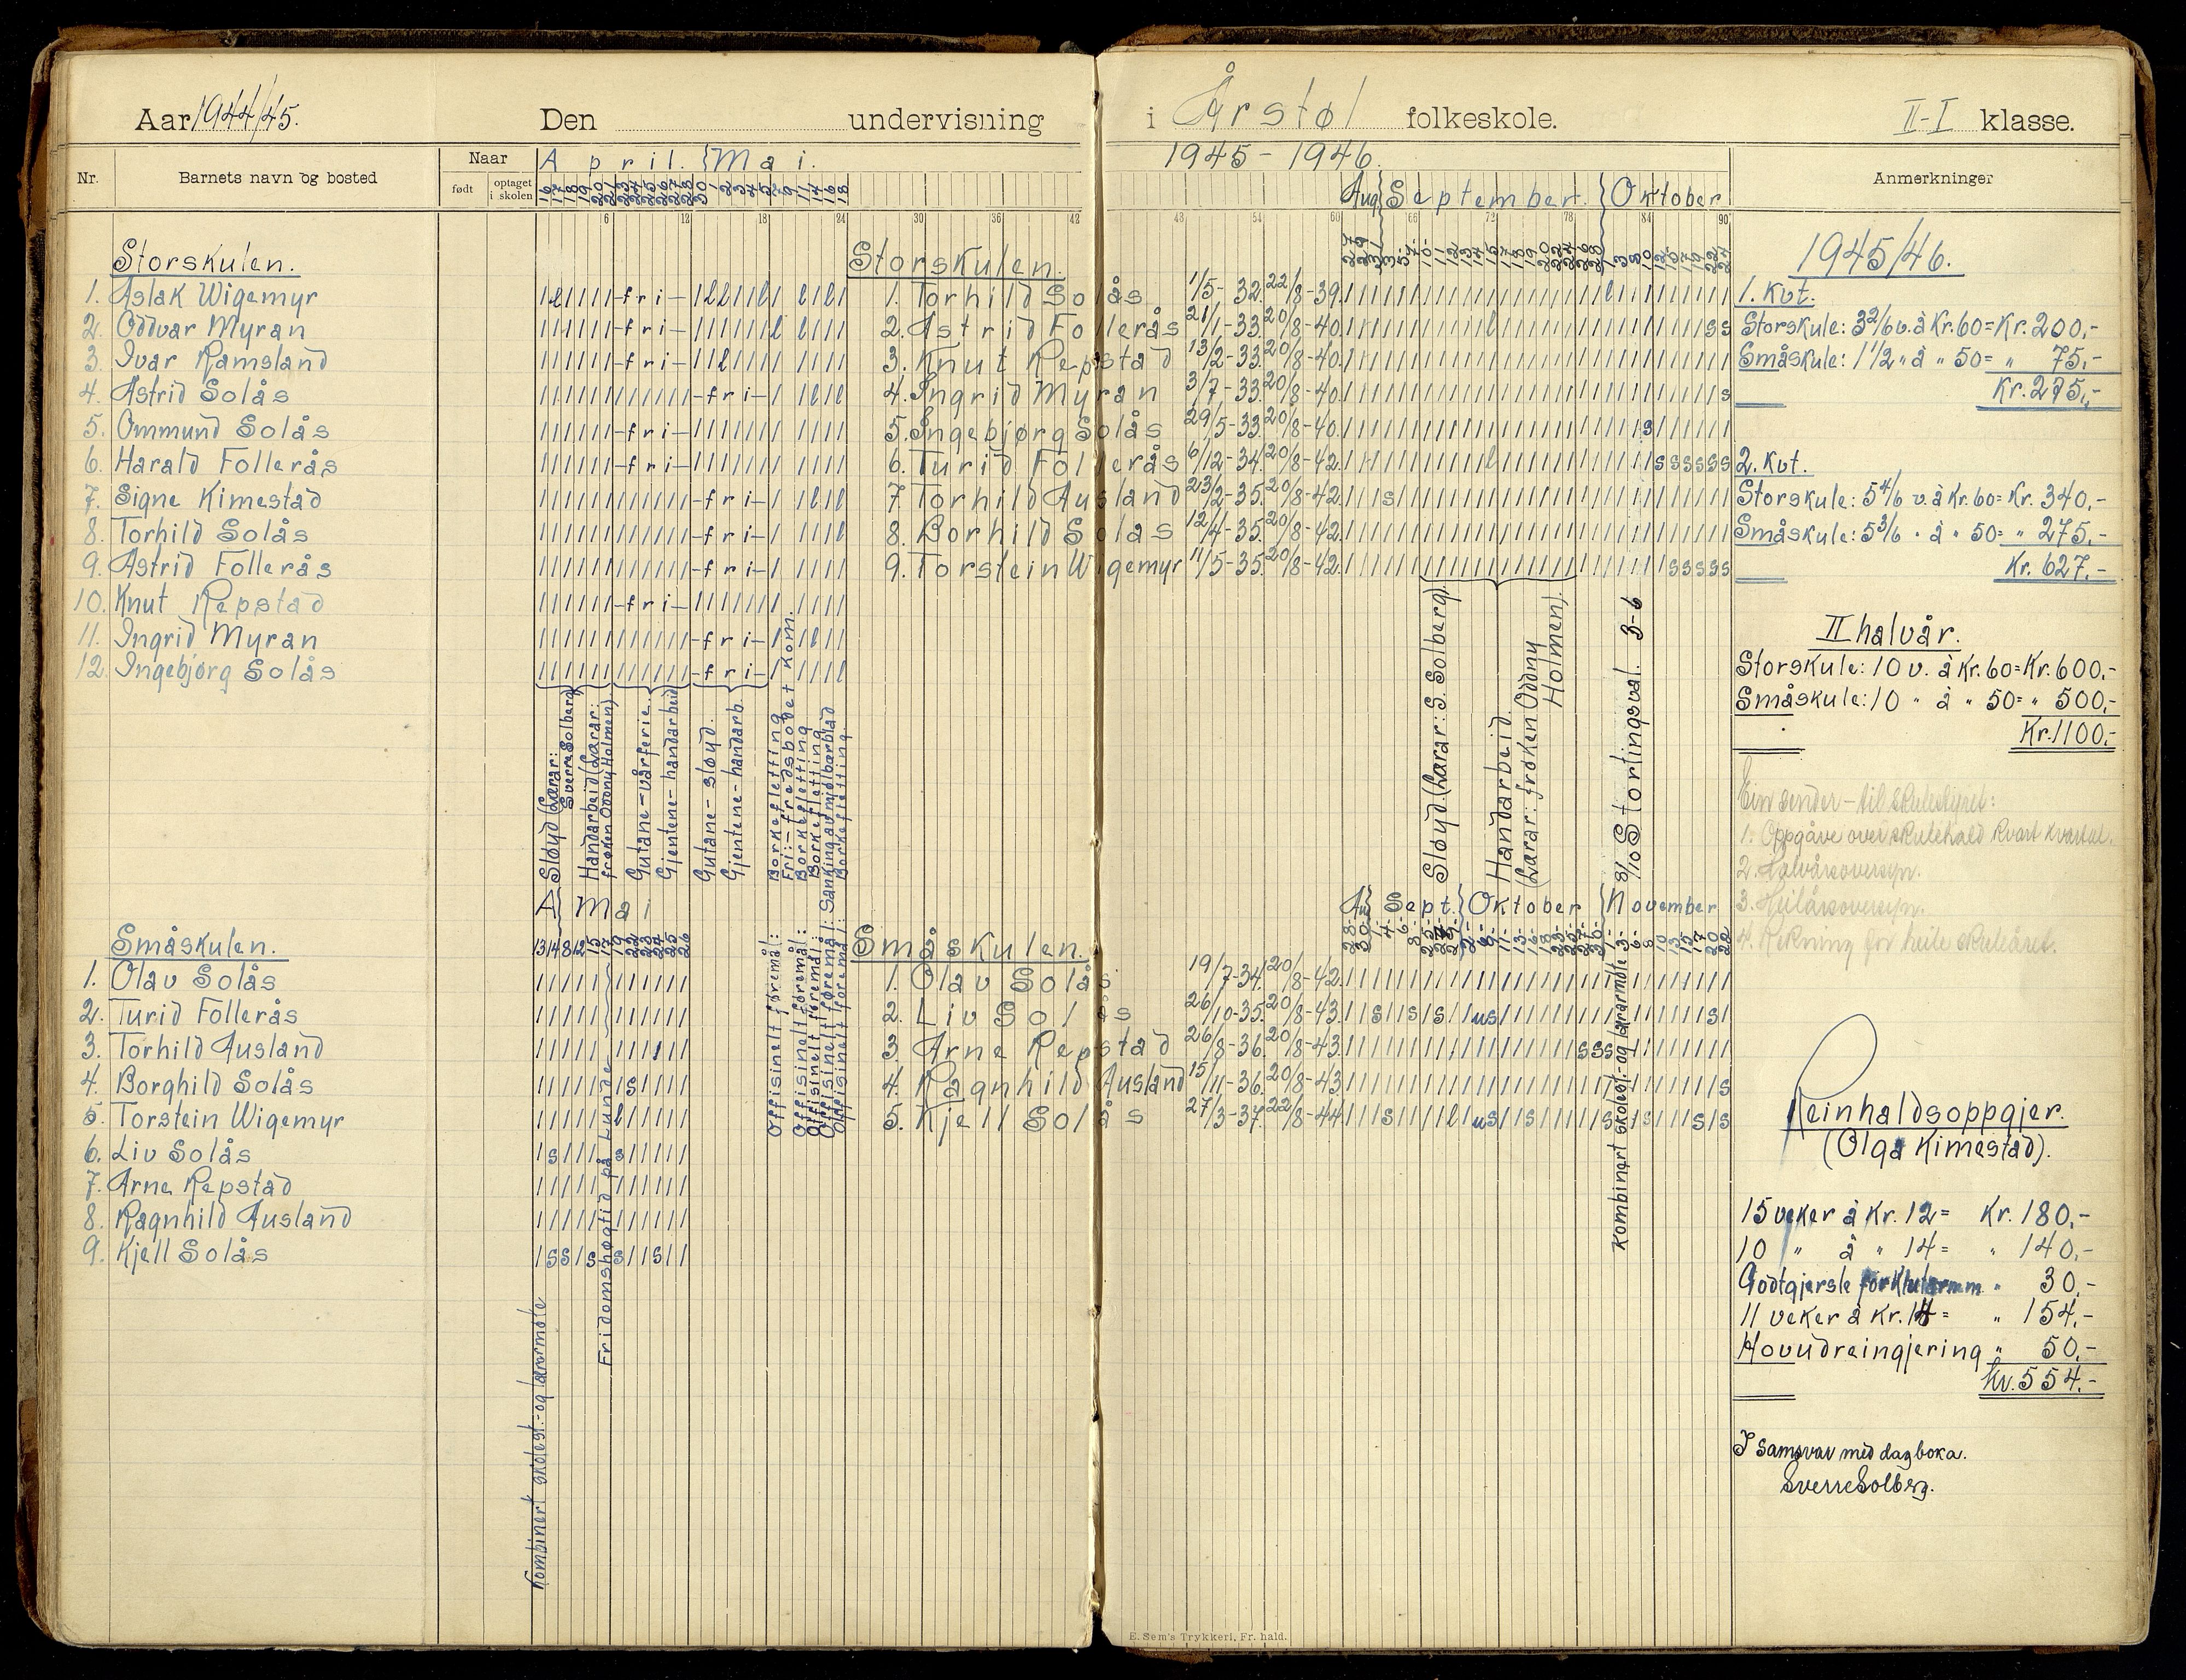 Aar 1944/45. Den undervisning i Årstøl folkeskole. II-I klasse.
Nr. Barnets navn og bosted Naar født optaget i skolen
April. Mai.
16 17 18 19 20 21 23 24 25 26 27 28 30 1 2 3 4 5 7 9 11 14 16 18
6 12 18 24 30 36 42
Storskulen.
1. Aslak Wigemyr
2. Oddvar Myran
3. Ivar Ramsland
4. Astrid Solås
5. Ommund Solås
6. Harald Follerås
7. Signe Kimestad
8. Torhild Solås
9. Astrid Follerås
10. Knut Repstad
11. Ingrid Myran
12. Ingebjørg Solås
Sløyd (Lærar: Sverre Solberg)
Handarbeid (Lærar: frøken Oddny Holmen)
Gutane-vårferie.
Gjentene-handarbeid
Gutane-sløyd.
Gjentene-handarb.
Offisinelt føremål: Borkefletting
Fri:-fredsbodet kom.
Offisinelt føremål: Borkefletting
Offisinelt føremål: Borkefletting
Offisinelt føremål: Sanking av mjølbærblad
Offisinelt føremål: Borkefletting
A Mai
13 14 8 12 15 17 19 22 23 24 25 26
Småskulen.
1. Olav Solås
2. Turid Follerås
3. Torhild Ausland
4. Borghild Solås
5. Torstein Wigemyr
6. Liv Solås
7. Arne Repstad
8. Ragnhild Ausland
9. Kjell Solås
Kombinert skolest.-og lærarmøte
Fridomshøgtid på Lunde
1945-1946.
Aug. September. Oktober
48 54 60 66 72 78 84 90
Storskulen.
1. Torhild Solås 1/5-32. 22/8-39.
2. Astrid Follerås 21/1-33. 20/8-40.
3. Knut Repstad 13/2-33. 20/8-40.
4. Ingrid Myran 3/7-33. 20/8-40.
5. Ingebjørg Solås 29/5-33. 20/8-40.
6. Turid Follerås 6/12-34. 20/8-42.
7. Torhild Ausland 23/2-35. 20/8-42.
8. Borhild Solås 12/4-35. 20/8-42.
9. Torstein Wigemyr 11/5-35. 20/8-42.
Sløyd. (Lærar: S. Solberg).
Handarbeid.
(Lærar: frøken Oddny Holmen).
8/10 Stortingsval. 3-6
Aug Sept. Oktober November
Småskulen.
1. Olav Solås 19/7-34. 20/8-42.
2. Liv Solås 26/10-35. 20/8-43.
3. Arne Repstad 26/8-36. 20/8-43.
4. Ragnhild Ausland 15/11-36. 20/8-43.
5. Kjell Solås 27/3-37. 22/8-44.
Kombinert skolest.-og lærarmøte
Anmerkninger
1945/46.
1. kvt.
Storskule: 3 2/6 v. à Kr. 60 = Kr. 200,-
Småskule: 1 1/2 " à " 50 = " 75,-
Kr. 275,-
2. kvt.
Storskule: 5 4/6 v. à Kr. 60 = Kr. 340,-
Småskule: 5 3/6 " à " 50 = " 275,-
Kr. 627,-
II halvår.
Storskule: 10 v. à Kr. 60 = Kr. 600,-
Småskule: 10 " à " 50 = " 500,-
Kr. 1100,-
Ein sender - til skulestyret:
1. Oppgåve over skulehald kvart kvartal.
2. Halvårsoversyn.
3. Heilårsoversyn.
4. Rekning for heile skuleåret.
Reinhaldsoppgjer.
(Olga Kimestad).
15 veker à Kr. 12 = Kr. 180,-
10 " à " 14 = " 140,-
Godtgjersle for " 30,-
11 veker à Kr. 14 = " 154,-
Hovudreingjering " 50,-
Kr. 554,-
I samsvar med dagboka.
Sverre Solberg.
E. Sem's Trykkeri, Fr. hald.